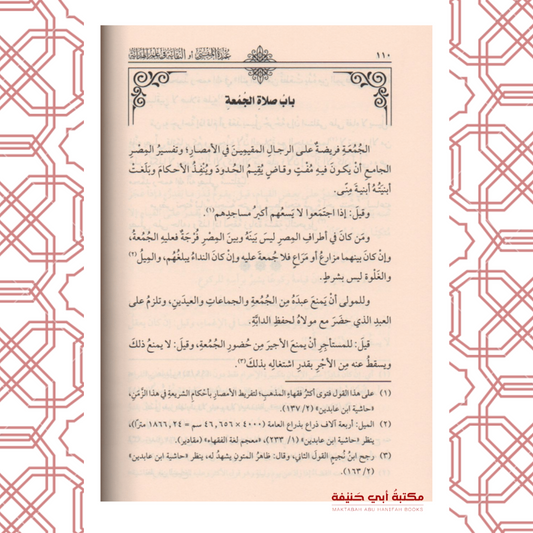 ١١٠
باب صلاة الجُمُعة
الجُمُعَة فريضةٌ على الرجال المقيمين في الأمصار؛ وتفسيرُ المِصْرِ
الجامعِ أنْ يكونَ فيه مُفْتٍ وقاضٍ يُقِيمُ الحُدودَ ويُنفِّذُ الأحكامَ وبَلَغَتْ
أبنيَتُه أبنيةَ مِنًى.
وقيلَ: إذا اجتمَعوا لا يَسعُهم أكبرُ مساجدِهم(١).
ومَن كانَ في أطرافِ المِصرِ ليسَ بَينَهُ وبينَ المِصْرِ فُرْجَةٌ فعليهِ الجُمُعَةُ،
وإنْ كانَ بينهما مزارعُ أو مَرَاعٍ فلا جُمعةَ عليه وإنْ كانَ النداءُ يبلغُهُم، والمِيلُ(٢)
والغَلْوة ليس بشرطٍ.
وللمولى أنْ يَمنعَ عبدَهُ مِن الجُمعةِ والجماعاتِ والعيدَينِ، وتلزمُ على
العبدِ الذي حضَرَ مع مولاهُ لحفظِ الدابَّةِ.
قيلَ: للمستأجِرِ أنْ يمنعَ الأجيرَ مِن حُضورِ الجُمعةِ، وقيلَ: لا يمنعُ ذلكَ
ويسقطُ عنه مِن الأجْرِ بقدرِ اشتغالِهِ بذلكَ(٣)
(١) على هذا القول فتوى أكثرُ فقهاءِ المذهبِ؛ لتفريط الأمصار بأحكام الشريعةِ في هذا الزَّمَنِ،
«حاشية ابن عابدين» (٢/ ١٣٧).
(٢) الميل: أربعة آلاف ذراع بذراع العامة (٤٠٠٠ × ٤٦,٦٥٦ سم = ١٨٦٦,٢٤ متراً)،
ينظر «حاشية ابن عابدين» (١/ ٢٣٣)، «معجم لغة الفقهاء» (مقادير).
(٣) رجح ابنُ نُجيمٍ القولَ الثاني، وقال: ظاهرُ المتونِ يشهدُ له، ينظر «حاشية ابن عابدين»
(٢/ ١٦٣).
مكتبة أبي حنيفة
MAKTABAH ABU HANIFAH BOOKS